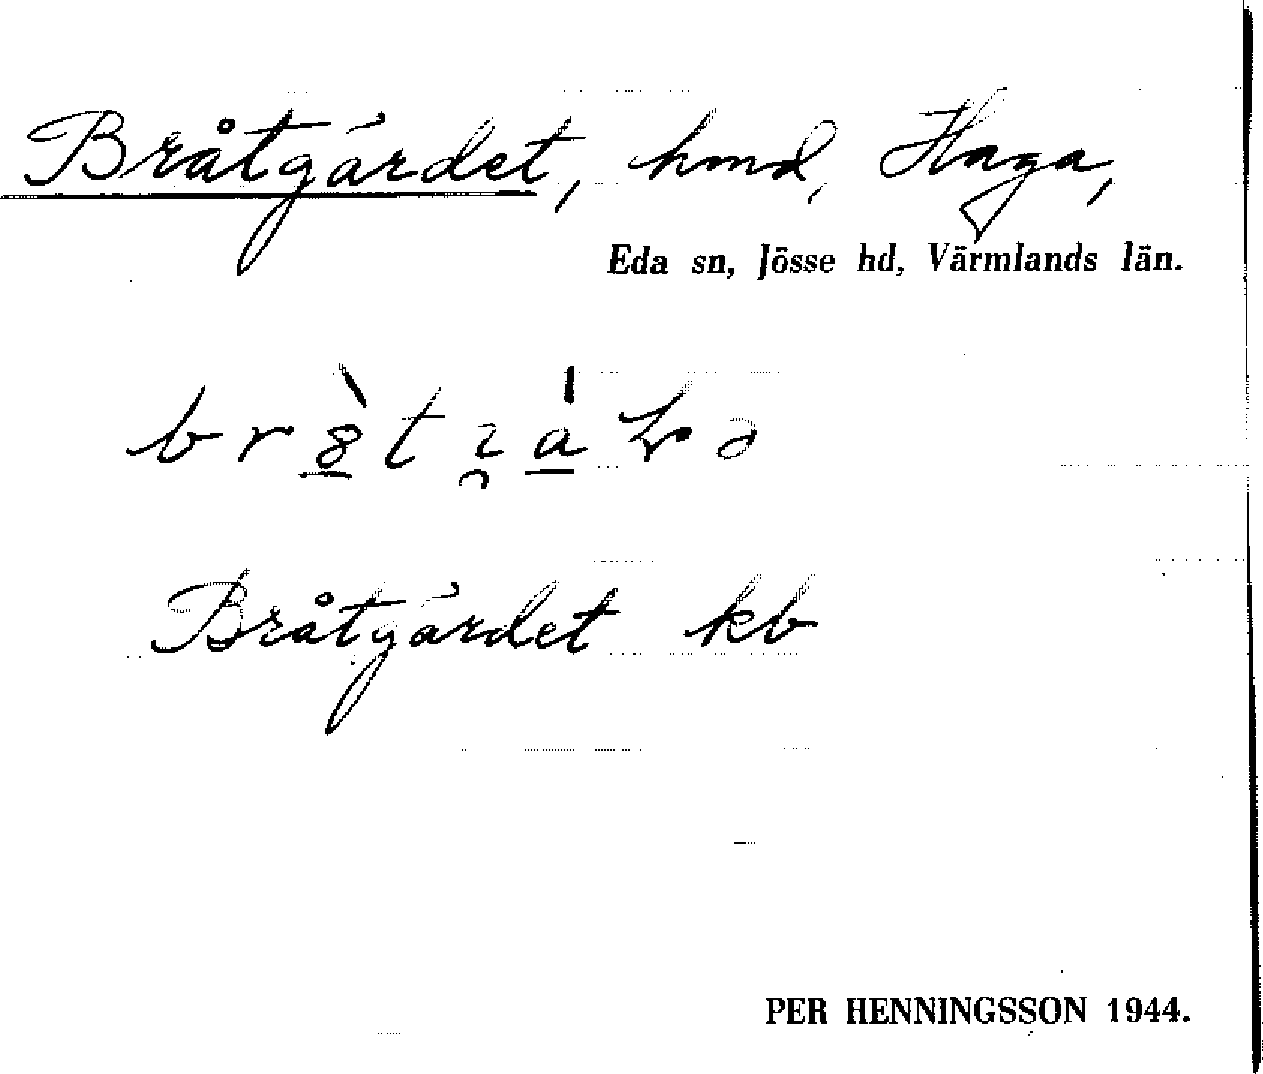 Bråtgärdet, hmd, Haga,
Eda sn, Jösse hd, Värmlands län.
Bråtgärdet kb
PER HENNINGSSON 1944.